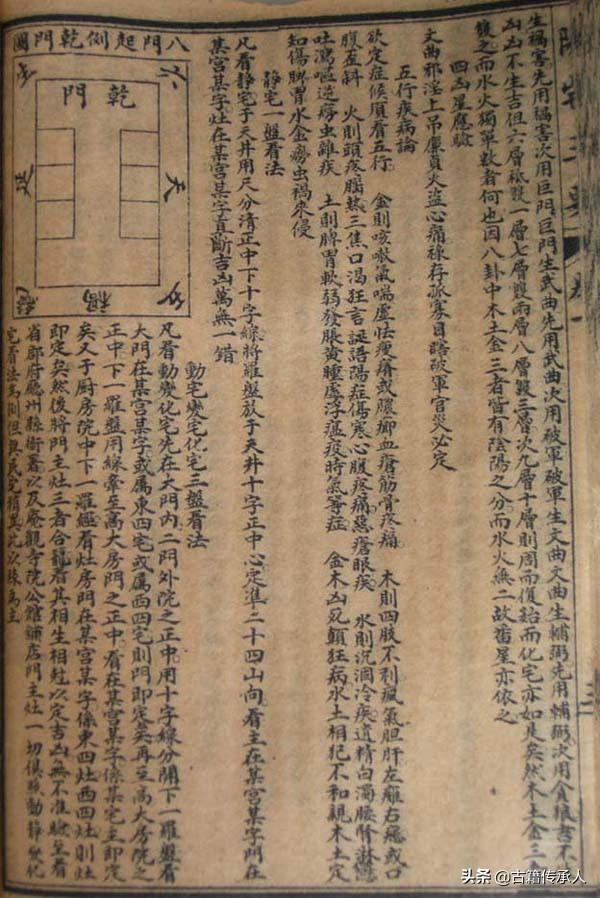 生禍害先用禍害次用巨門巨門生武曲先用武曲次用破軍破軍生文曲文曲生輔弼先用輔弼次用貪狼吉不
凶凶不生吉但六層秪𩀱一層七層𩀱兩層八層𩀱三層次九層十層則周而復始而化宅亦如是矣然木土金三
𩀱之而水火獨單數者何也因八卦中木土金三者皆有陰陽之分而水火無二故畨星亦依之
四凶星應驗
文曲邪淫上吊廉貞火盜心痛祿存孤寡目瞎破軍官災必定
五行疾病論
欲定症候須看五行 金則咳嗽氣喘虛怯瘦瘠或膿血瘡筋骨疼痛 木則四肢不利瘋氣胆肝左癱右瘓或口
腹歪斜 火則頭疼腦熱三焦口渴狂言譫語陽症傷寒心腹疼痛惡瘡眼疾 水則沉涸冷疾遺精白濁腰腎淋
吐瀉嘔逆癆虫雜疾 土則脾胃軟弱發脹黃腫虛浮瘟疫時氣等症 金木凶死顛狂病水土相犯不和親木土定
知傷脾胃水金癆虫禍來侵
静宅一盤看法
凡看静宅于天井用尺分清正中下十字線將羅盤放于天井十字正中心定準二十四山向看主在某宮某字門在
某宮某字灶在某宮某字直斷吉凶萬無一錯
八門起側乾門圖
乾門
六
天
五
禍
動宅變宅化宅三盤看法
凡看動變化宅先在大門內二門外院之正中用十字線分開下一羅盤看
大門在某宮某字或属東四宅或属西四宅則門即定矣再至高大房院之
正中下一羅盤用線牽至高大房門之正中看在某宮某字係某宅主即定
矣又于厨房院中下一羅盤看灶房門在某宮某字係東四灶西四灶則灶
即定矣然後將門主灶三者合籠看其相生相尅以定吉凶無不准驗至若
省郎府廳州縣衙署以及庵觀寺院公館鋪店門主灶一切俱照動静變化
宅看法為則但與民宅
頭条 @古籍传承人